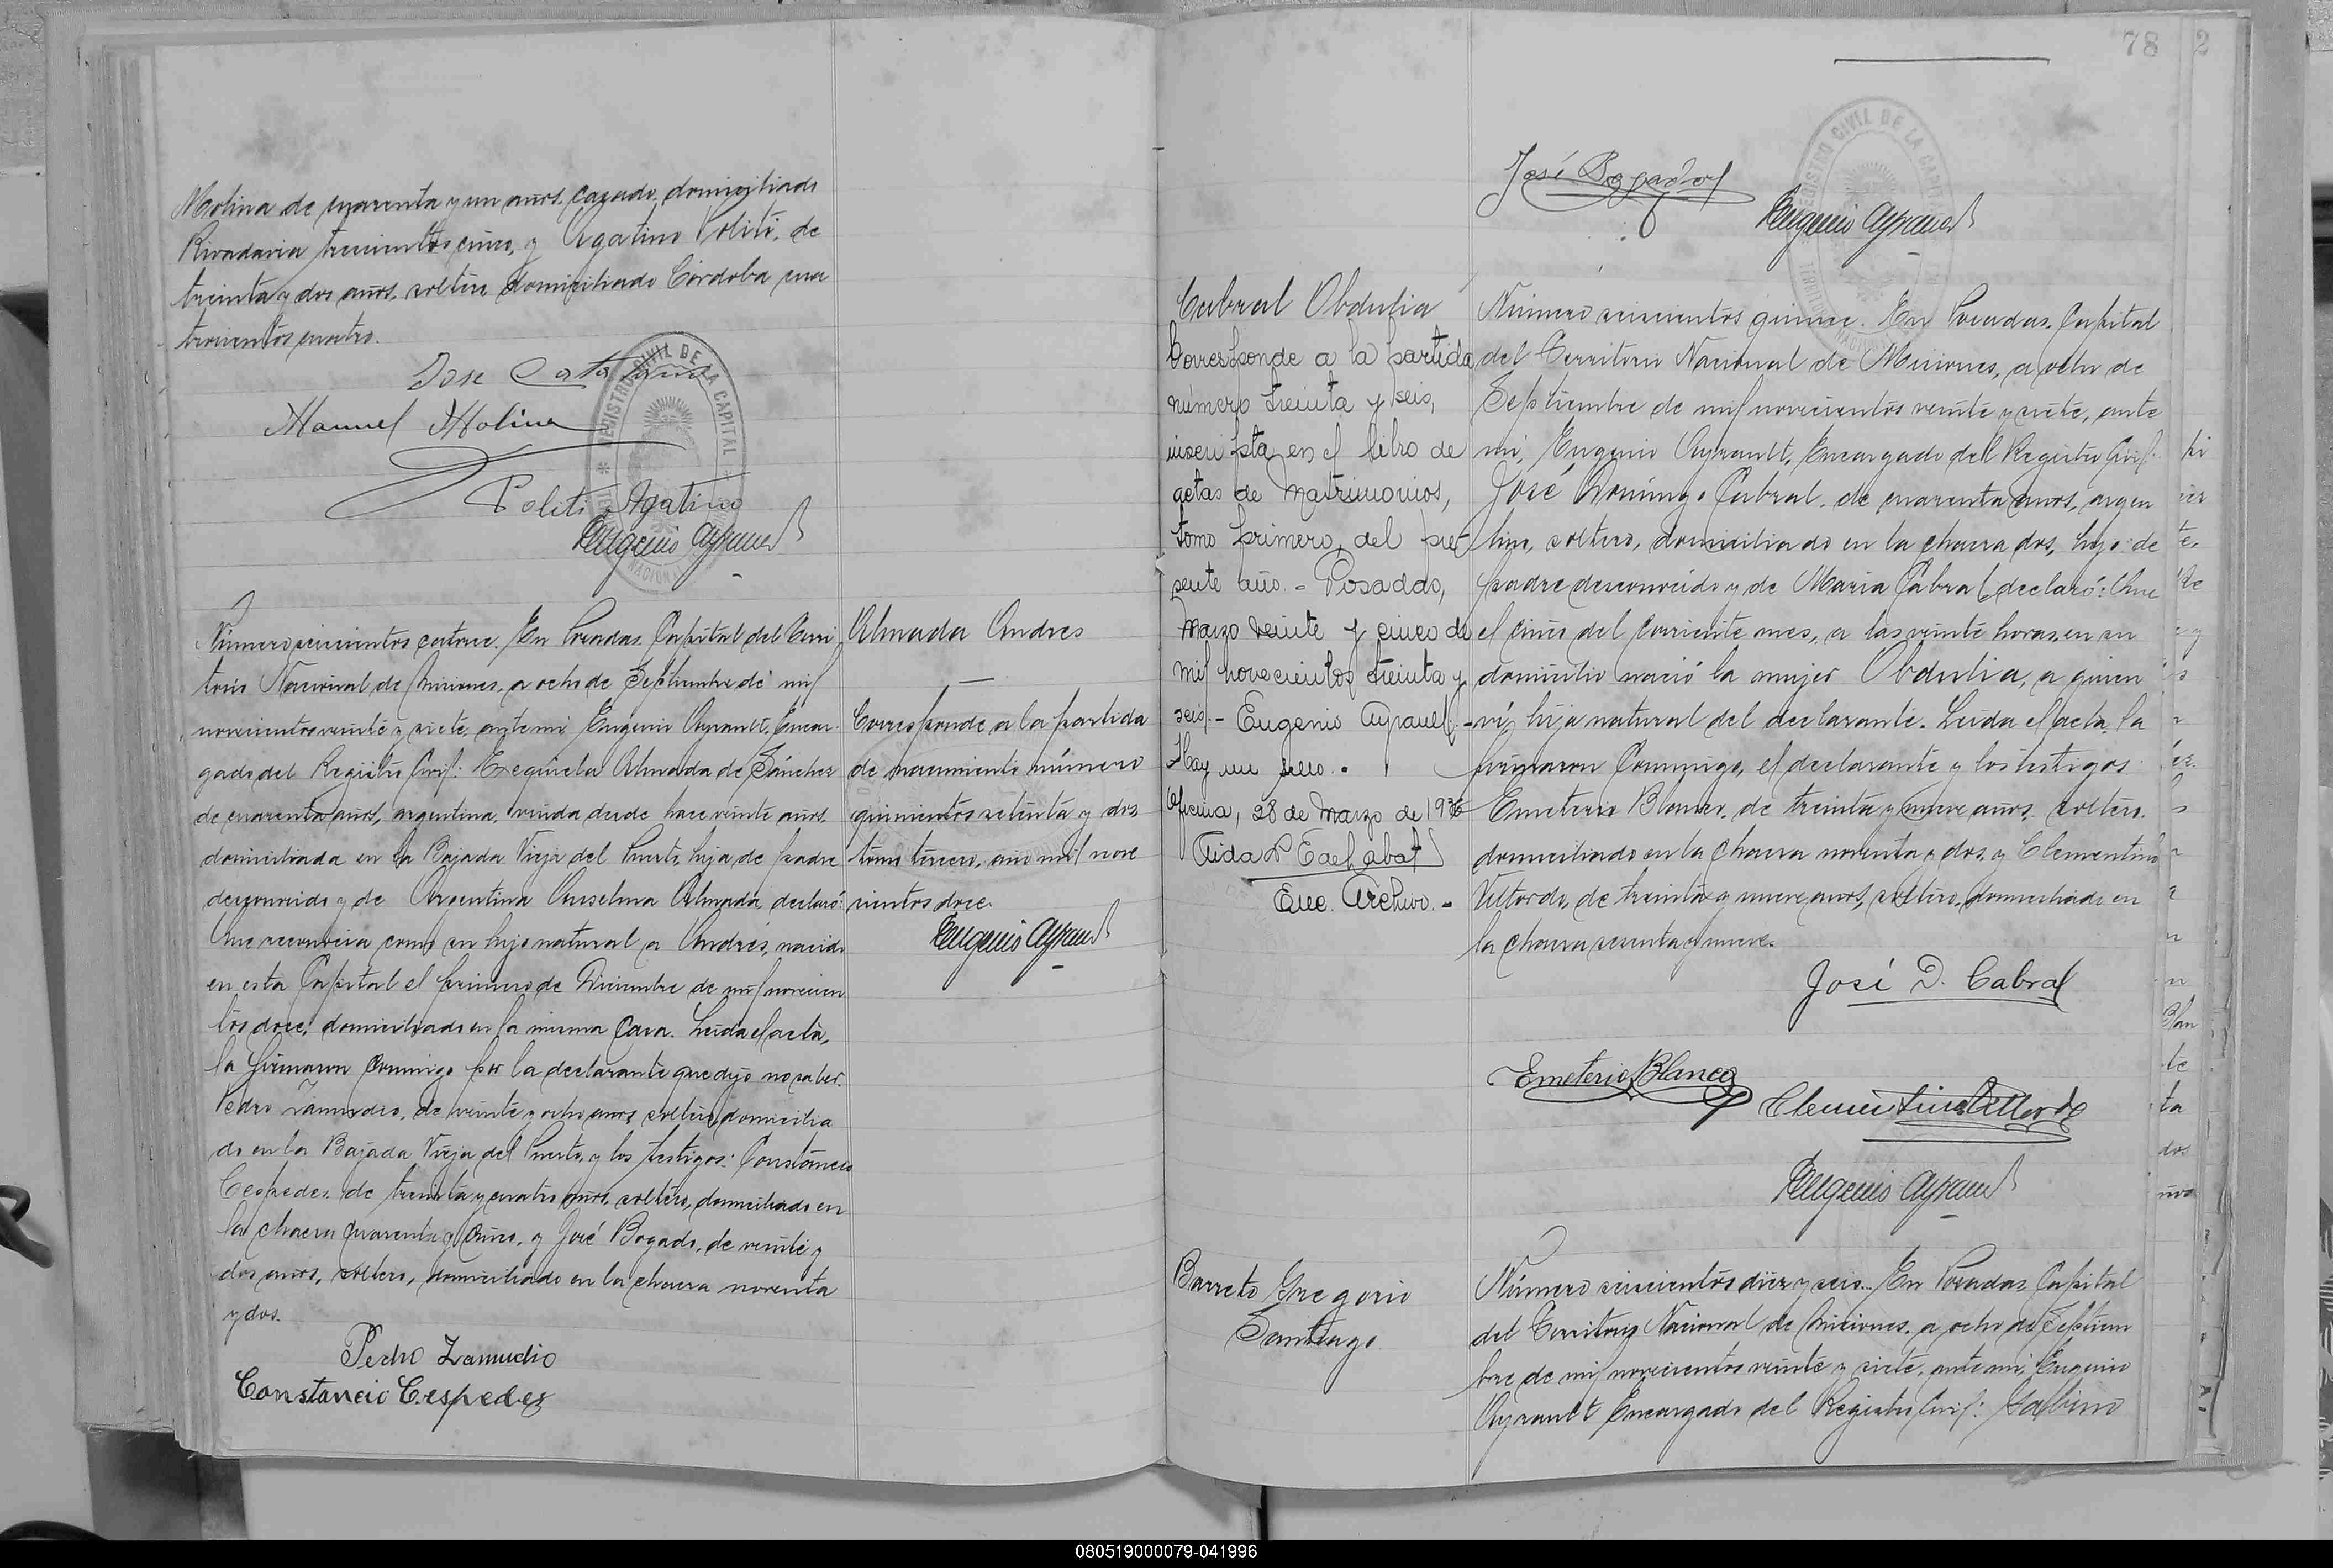 Molina de cuarenta y un años, casado, domiciliado
Rivadavia trescientos cinco, y Agatino Politi, de
treinta y dos años, soltero domiciliado Córdoba cua
trocientos cuatro.
Jose Catalano
Manuel Molina
Politi Agatino
Eugenio Ayrault
REGISTRO CIVIL DE LA CAPITAL
NACIONAL
Número seiscientos catorce. En Posadas, Capital del Terri
torio Nacional de Misiones, a ocho de Septiembre de mil
novecientos veinte y siete, ante mi Eugenio Ayrault, Encar
gado del Registro Civil: Exequiela Almada de Sánchez
de cuarenta años, argentina, viuda desde hace veinte años,
domiciliada en la Bajada Vieja del Puerto, hija de padre
desconocido y de Argentina Anselma Almada, declaró:
Que reconocia como su hijo natural a Andrés, nacido
en esta Capital el primero de Diciembre de mil novecien
tos doce, domiciliado en la misma casa. Leída el acta,
la firmaron conmigo por la declarante que dijo no saber
Pedro Zamudio, de veinte y ocho años, soltero domicilia
do en la Bajada Vieja del Puerto, y los testigos: Constancio
Cespedes de treinta y cuatro años, soltero, domiciliado en
la chacra cuarenta y cinco, y José Bogado, de veinte y
dos años, soltero, domiciliado en la chacra noventa
y dos.
Pedro Zamudio
Constancio Cespedes
Almada Andres
Corresponde a la partida
de nacimiento número
quinientos setenta y dos
tomo tercero, año mil nove
cientos doce.
Eugenio Ayrault
78
2
José Bogado
Eugenio Ayrault
REGISTRO CIVIL DE LA CAPITAL
Cabral Obdulia
Corresponde a la partida
número treinta y seis,
inscripta en el libro de
actas de Matrimonios,
tomo primero, del pre
sente año. - Posadas,
Marzo veinte y cinco de
mil novecientos treinta y
seis. - Eugenio Ayrault. -
Hay un sello. -
Oficina, 28 de Marzo de 1936
Enc. Archivo. -
Número seiscientos quince. En Posadas, Capital
del Territorio Nacional de Misiones, a ocho de
Septiembre de mil novecientos veinte y siete, ante
mi, Eugenio Ayrault, Encargado del Registro Civil:
José Domingo Cabral, de cuarenta años, argen
tino, soltero, domiciliado en la chacra dos, hijo de
padre desconocido y de Maria Cabral, declaró: Que
el cinco del corriente mes, a las veinte horas, en su
domicilio nació la mujer Obdulia, a quien
vi, hija natural del declarante. Leída el acta, la
firmaron conmigo, el declarante y los testigos
Emeterio Blanco, de treinta y nueve años, soltero,
domiciliado en la chacra noventa y dos, y Clementino
de treinta y nueve años, soltero, domiciliado en
la chacra sesenta y nueve.
José D. Cabral
Emeterio Blanco
Clementino
Eugenio Ayrault
Barreto Gregorio
Santiago
Número seiscientos diez y seis. En Posadas, Capital
del Territorio Nacional de Misiones, a ocho de Septiem
bre de mil novecientos veinte y siete, ante mi, Eugenio
Ayrault Encargado del Registro Civil: Sabino
080519000079-041996